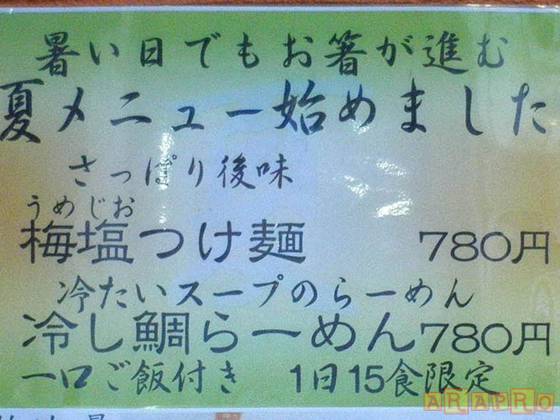 暑い日でもお箸が進む
夏メニュー始めました
さっぱり後味
うめじお
梅塩つけ麺 780円
冷たいスープのらーめん
冷し鯛らーめん 780円
一口ご飯付き 1日15食限定
ARAPRO